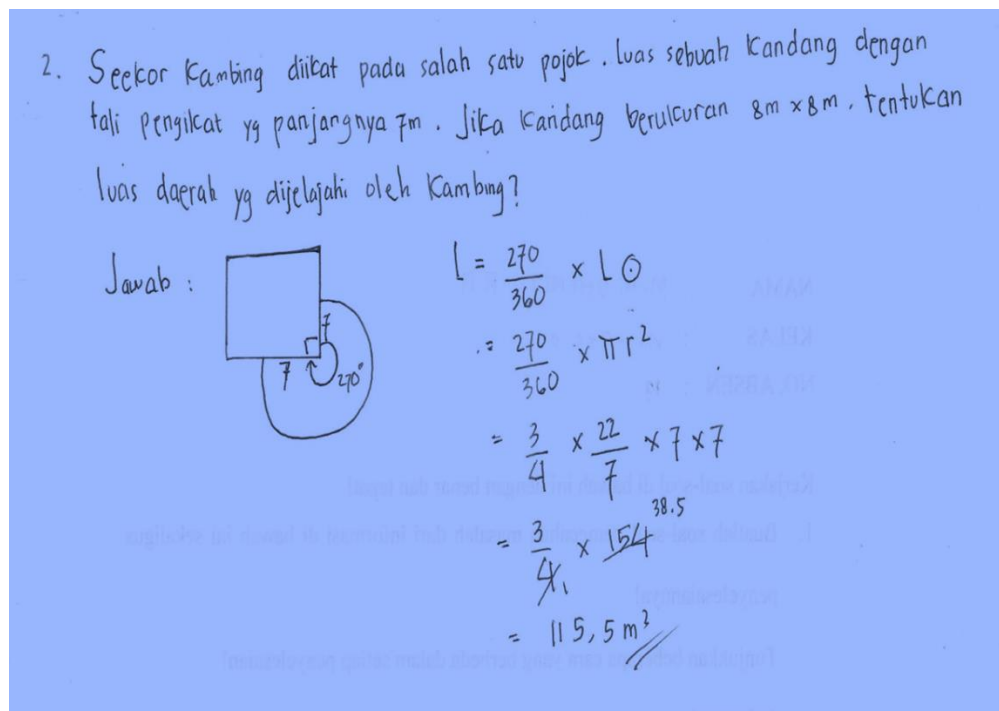 2. Seekor Kambing diikat pada salah satu pojok. Luas sebuah Kandang dengan
tali pengikat yg panjangnya 7m. Jika Kandang berukuran 8m x 8m, tentukan
luas daerah yg dijelajahi oleh Kambing?
Jawab :
7
7
270°
L = 270/360 x L ⊙
= 270/360 x πr²
= 3/4 x 22/7 x 7 x 7
38.5
= 3/4 x 154
1
= 115,5 m²
NAMA
KELAS
NO. ABSEN